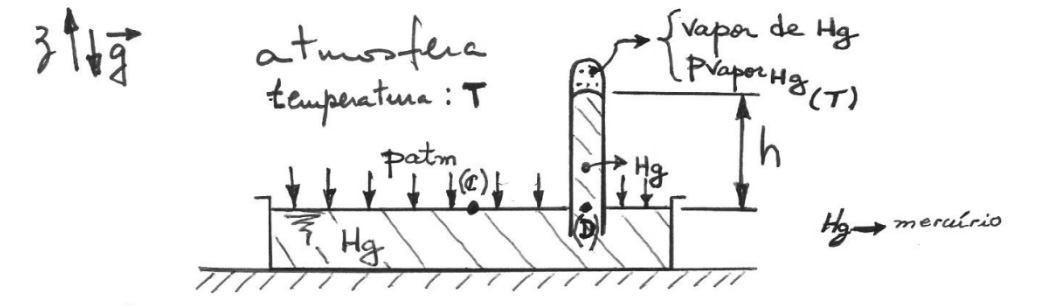 z g
atmosfera
temperatura: T
vapor de Hg
Pvapor Hg (T)
patm
(C)
Hg
h
(D)
Hg
Hg → mercúrio